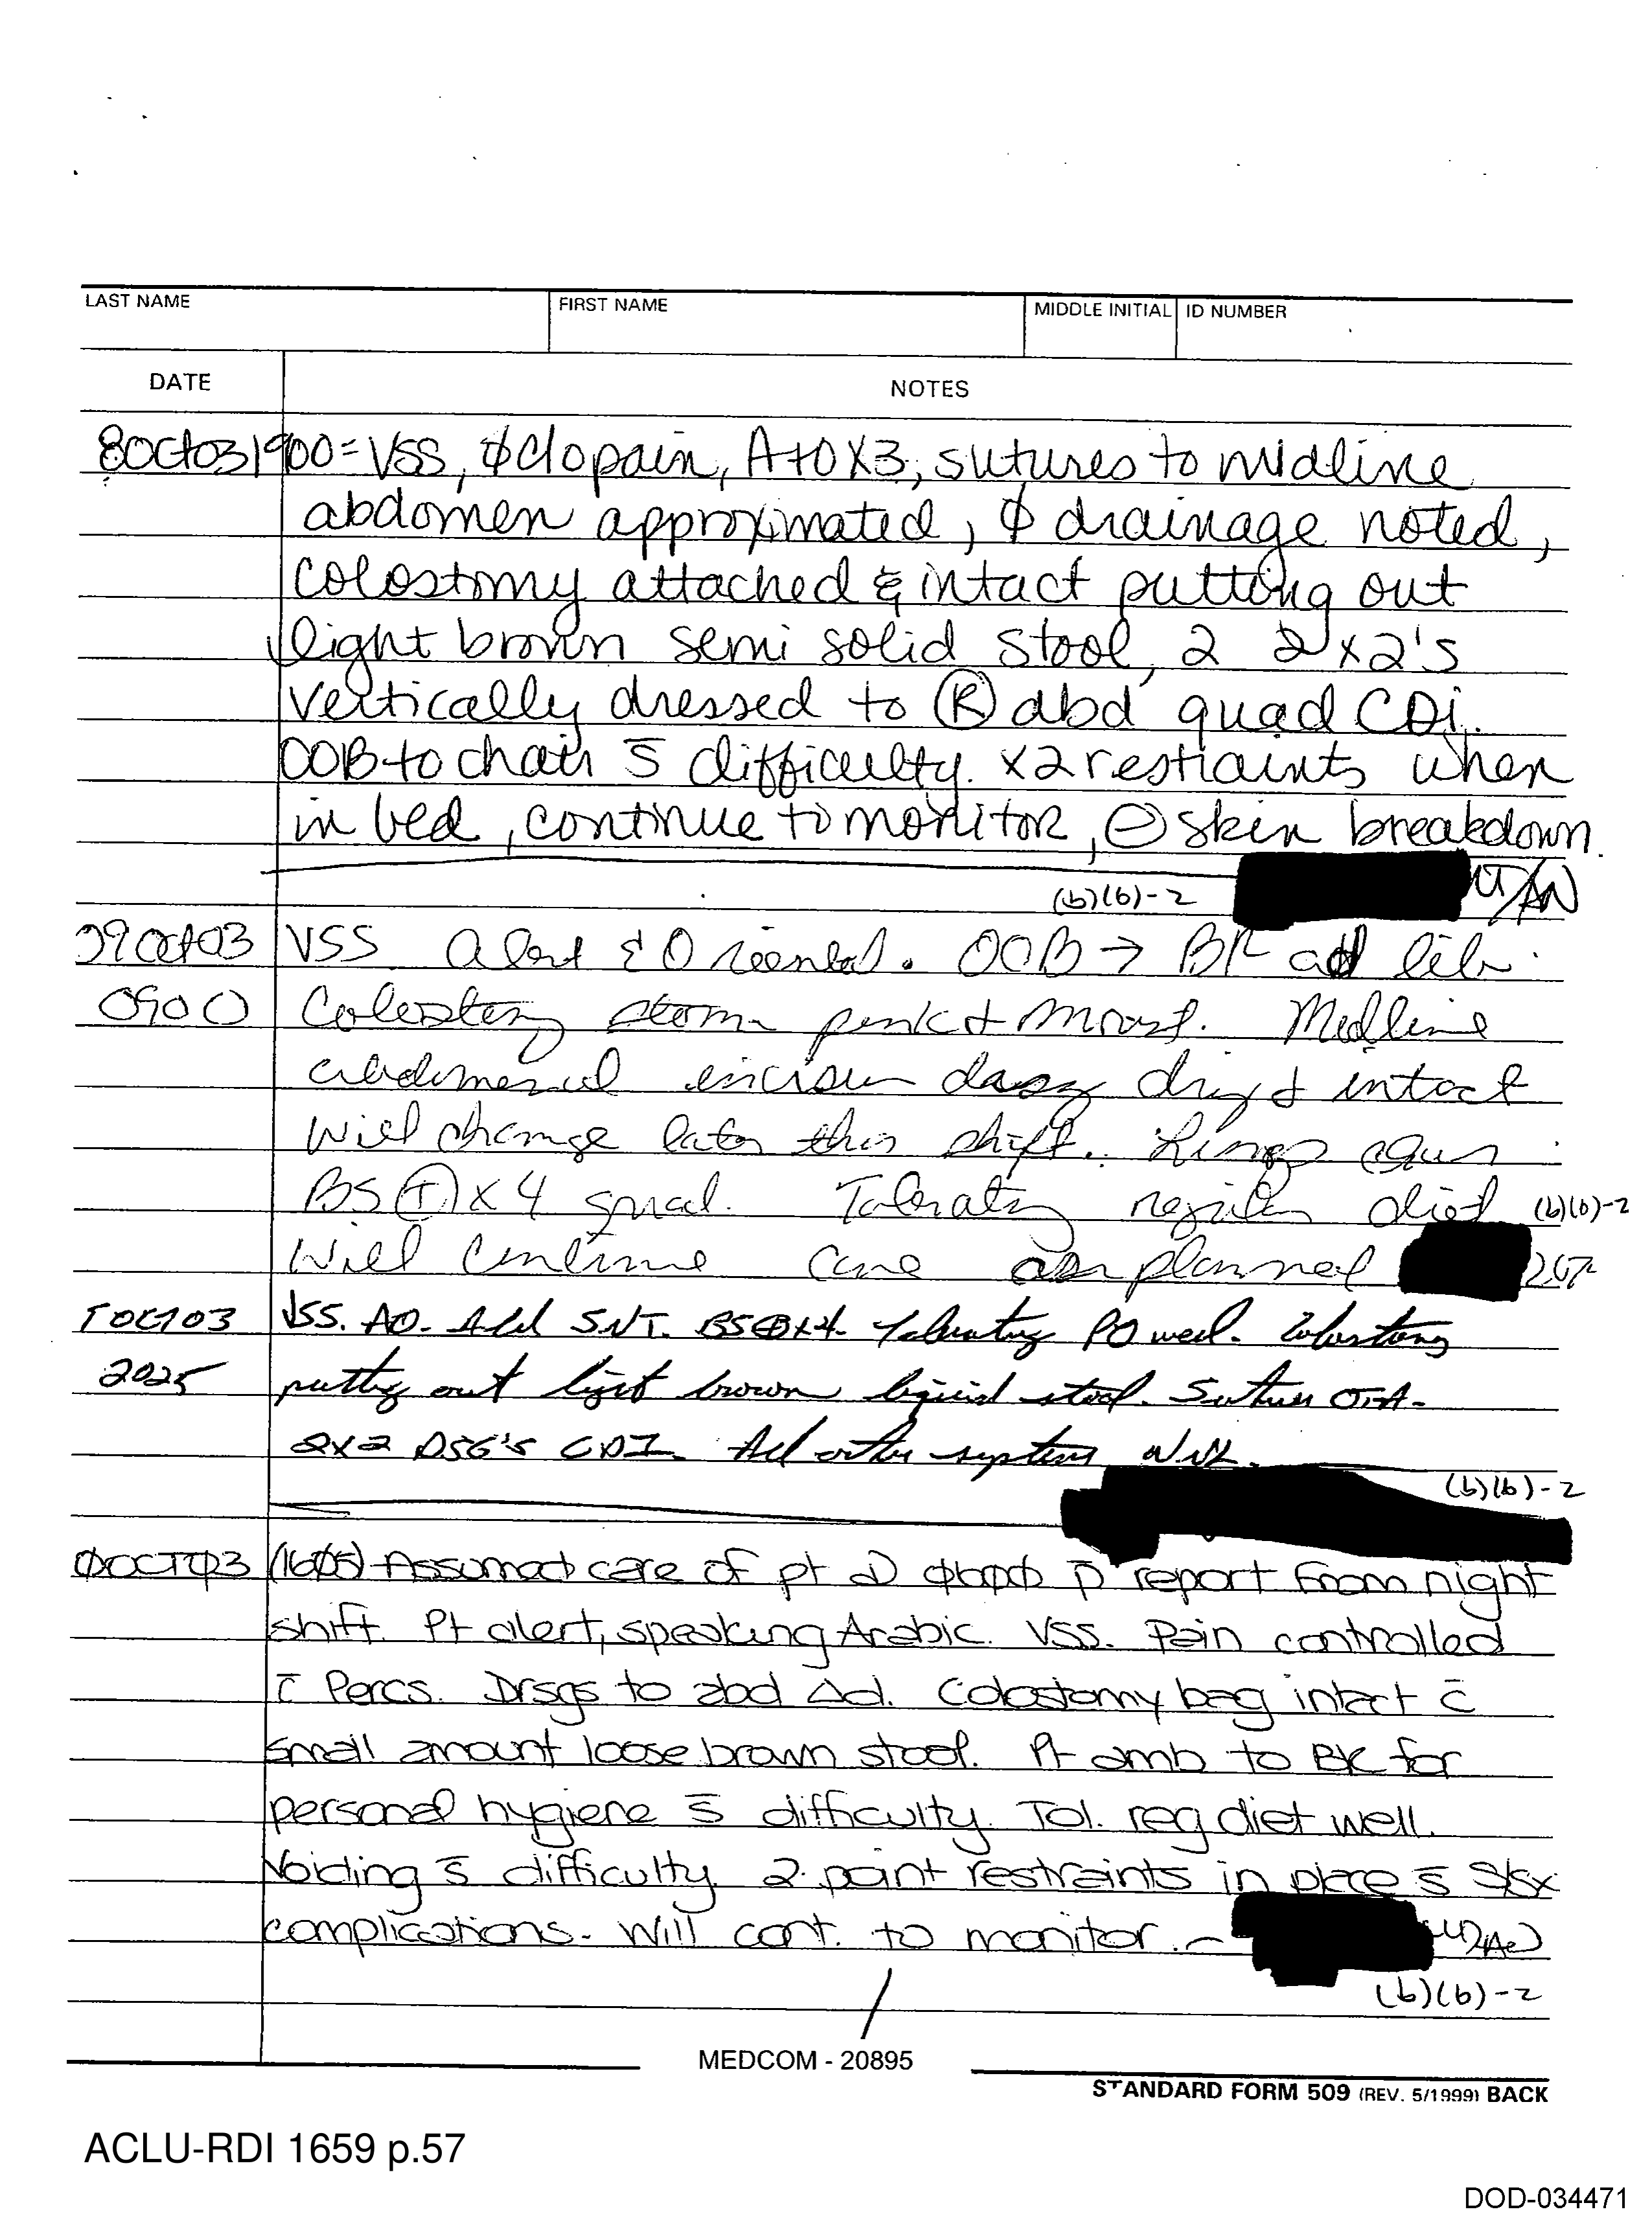 LAST NAME FIRST NAME MIDDLE INITIAL ID NUMBER
DATE NOTES
8Oct03 1900= VSS, ∅ c/o pain, A+O X3, sutures to midline
abdomen approximated, ∅ drainage noted,
colostomy attached & intact putting out
light brown semi solid stool, 2 2x2's
vertically dressed to Ⓡ abd quad CDi.
OOB to chair s̄ difficulty. x2 restraints when
in bed, continue to monitor, ⊖ skin breakdown.
(b)(6)-2
09Oct03 VSS Alert & Oriented. OOB → BR ad lib.
0900 Colostomy stoma pink & moist. Midline
abdominal incision dssg dry & intact
Will change later this shift. Lungs clear
BS ⊕ x 4 quad. Tolerating regular diet (b)(6)-2
Will continue care as planned
OCT03 VSS. AO. Abd SNT. BS⊕x4. Tolerating PO well. Colostomy
2025 putting out light brown liquid stool. Sutures OTA.
2x2 DSG's CDI. All other systems WNL.
(b)(6)-2
OCT03 (1605) Assumed care of pt @ 0600 p̄ report from night
shift. Pt alert, speaking Arabic. VSS. Pain controlled
c̄ Percs. Drsgs to abd Δd. Colostomy bag intact c̄
small amount loose brown stool. Pt amb to BR for
personal hygiene s̄ difficulty. Tol. reg diet well.
Voiding s̄ difficulty. 2 point restraints in place s̄ S/Sx
complications. Will cont. to monitor.
(b)(6)-2
MEDCOM - 20895
STANDARD FORM 509 (REV. 5/1999) BACK
ACLU-RDI 1659 p.57
DOD-034471